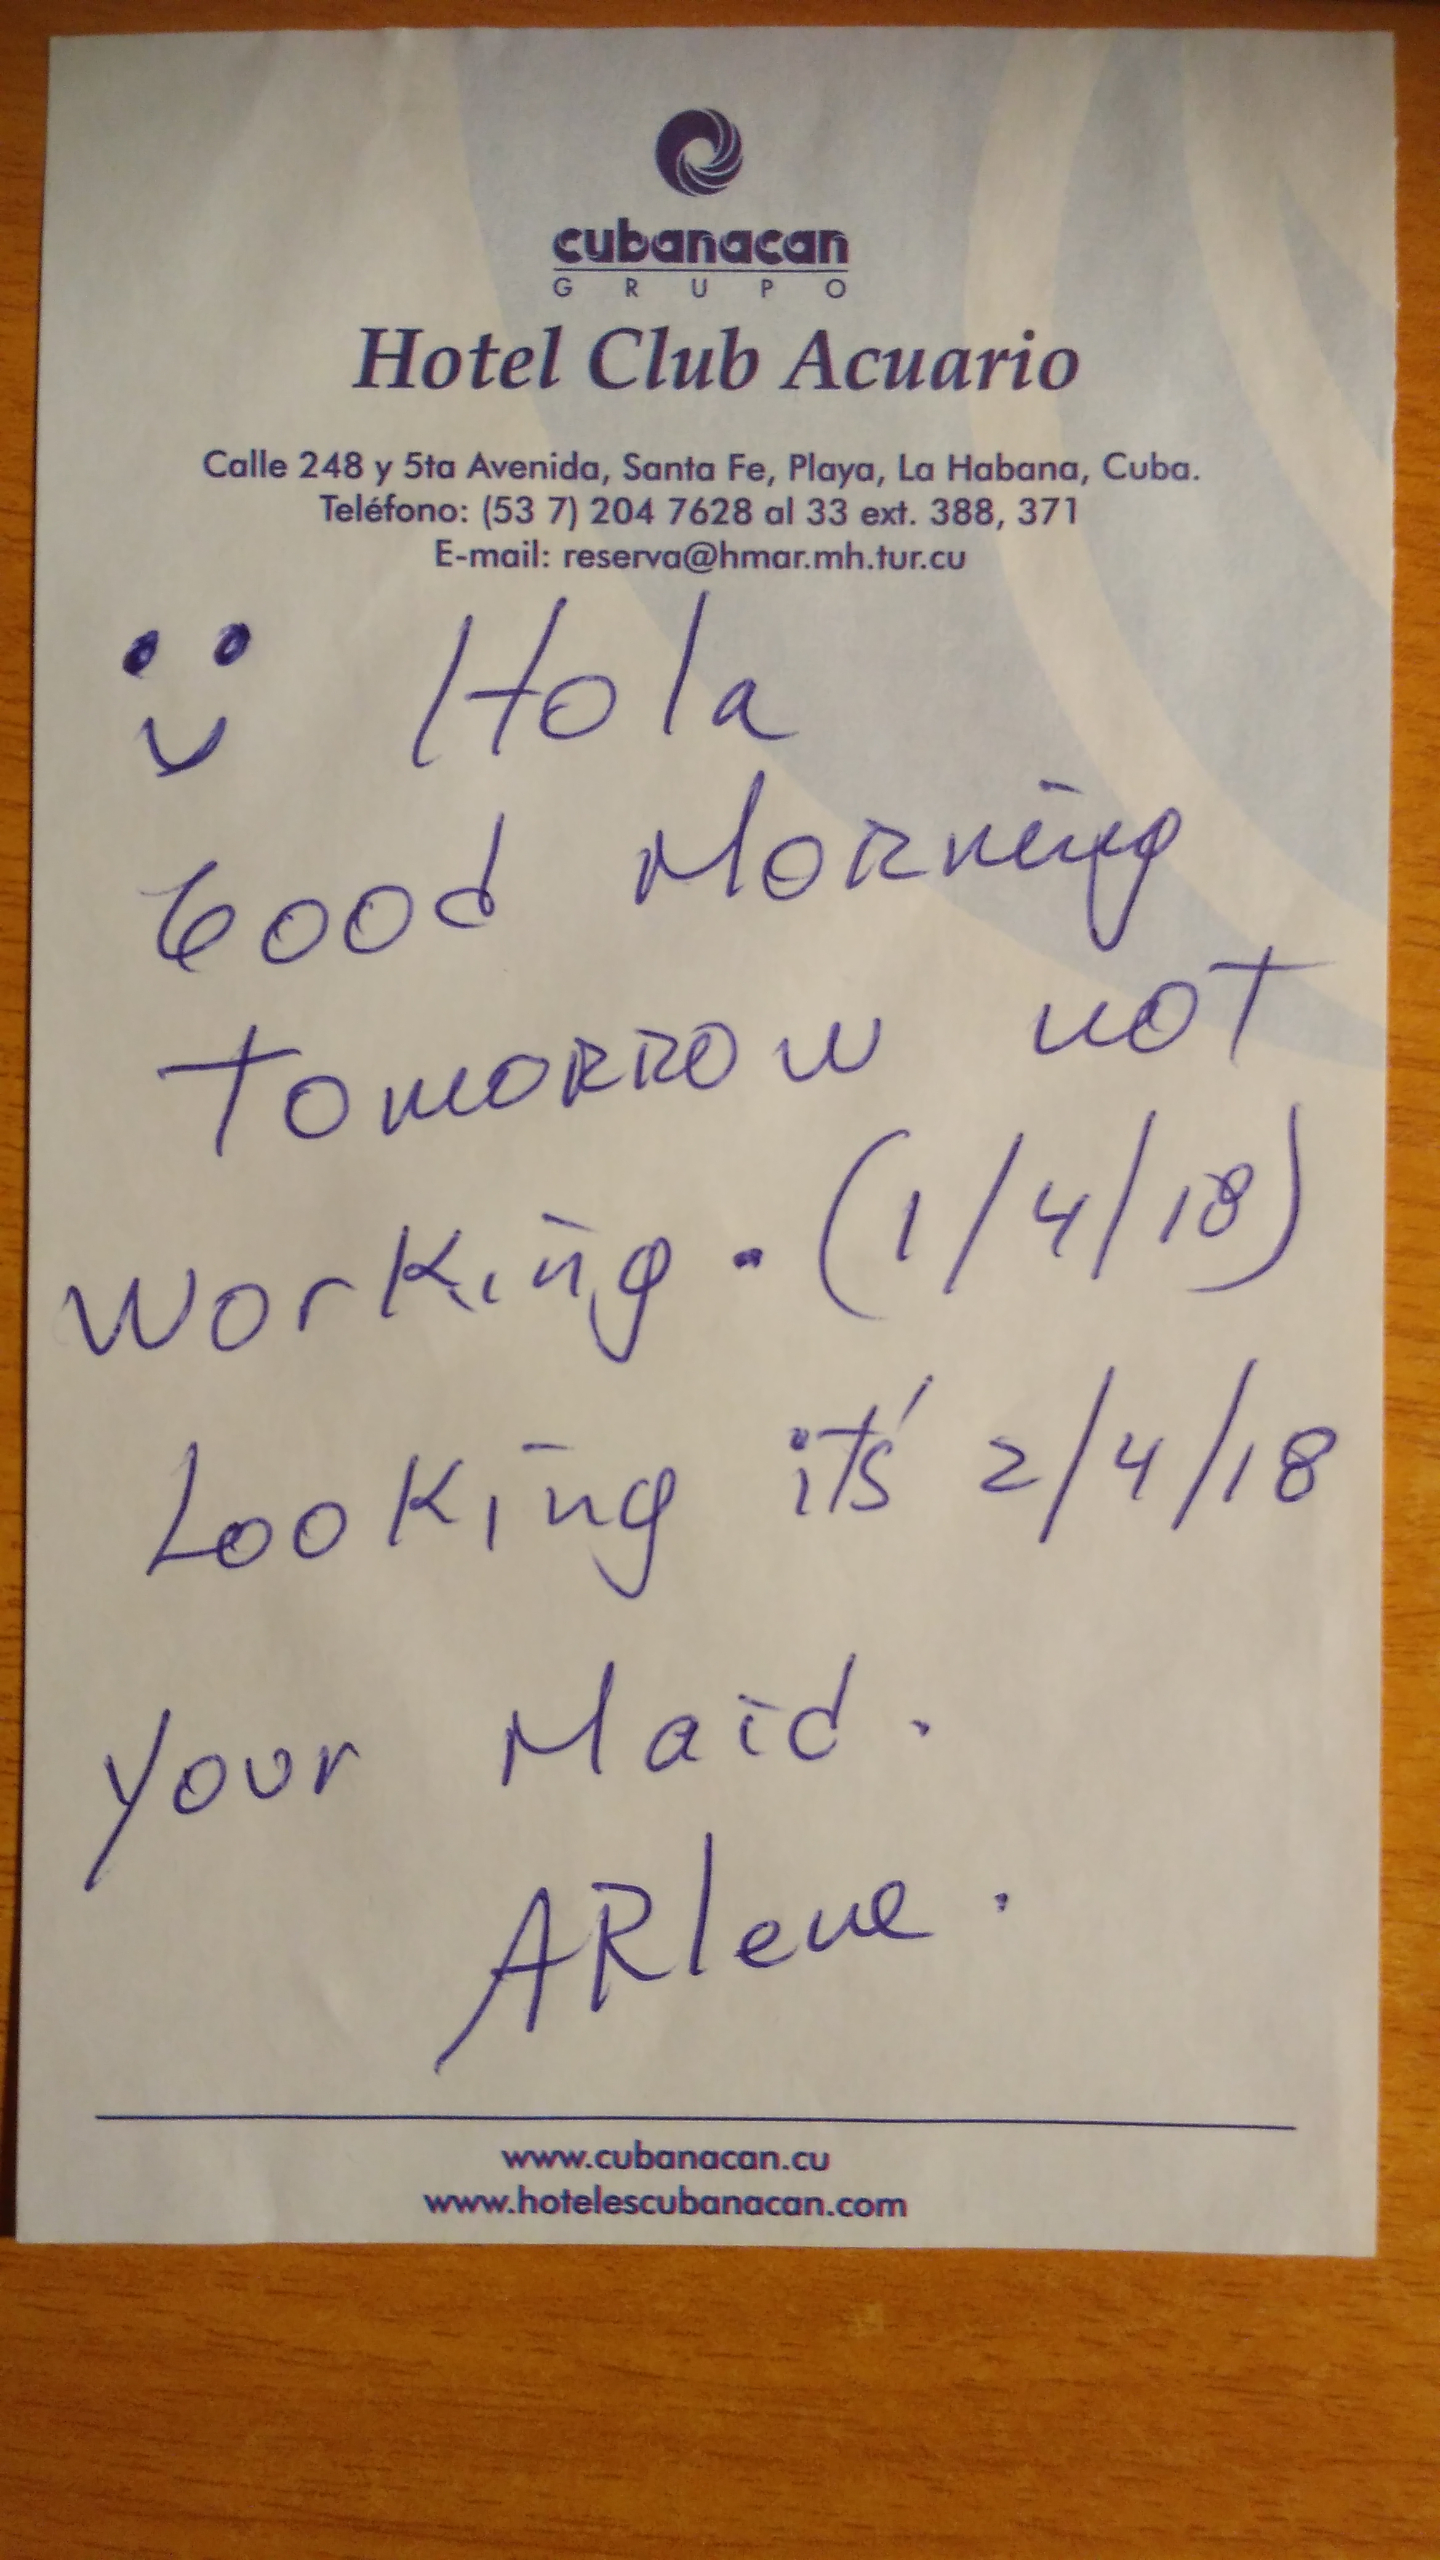 cubanacan
GRUPO
Hotel Club Acuario
Calle 248 y 5ta Avenida, Santa Fe, Playa, La Habana, Cuba.
Teléfono: (53 7) 204 7628 al 33 ext. 388, 371
E-mail: reserva@hmar.mh.tur.cu
Hola
Good Morning
Tomorrow not
working. (1/4/18)
Looking it's 2/4/18
Your Maid.
ARlene.
www.cubanacan.cu
www.hotelescubanacan.com